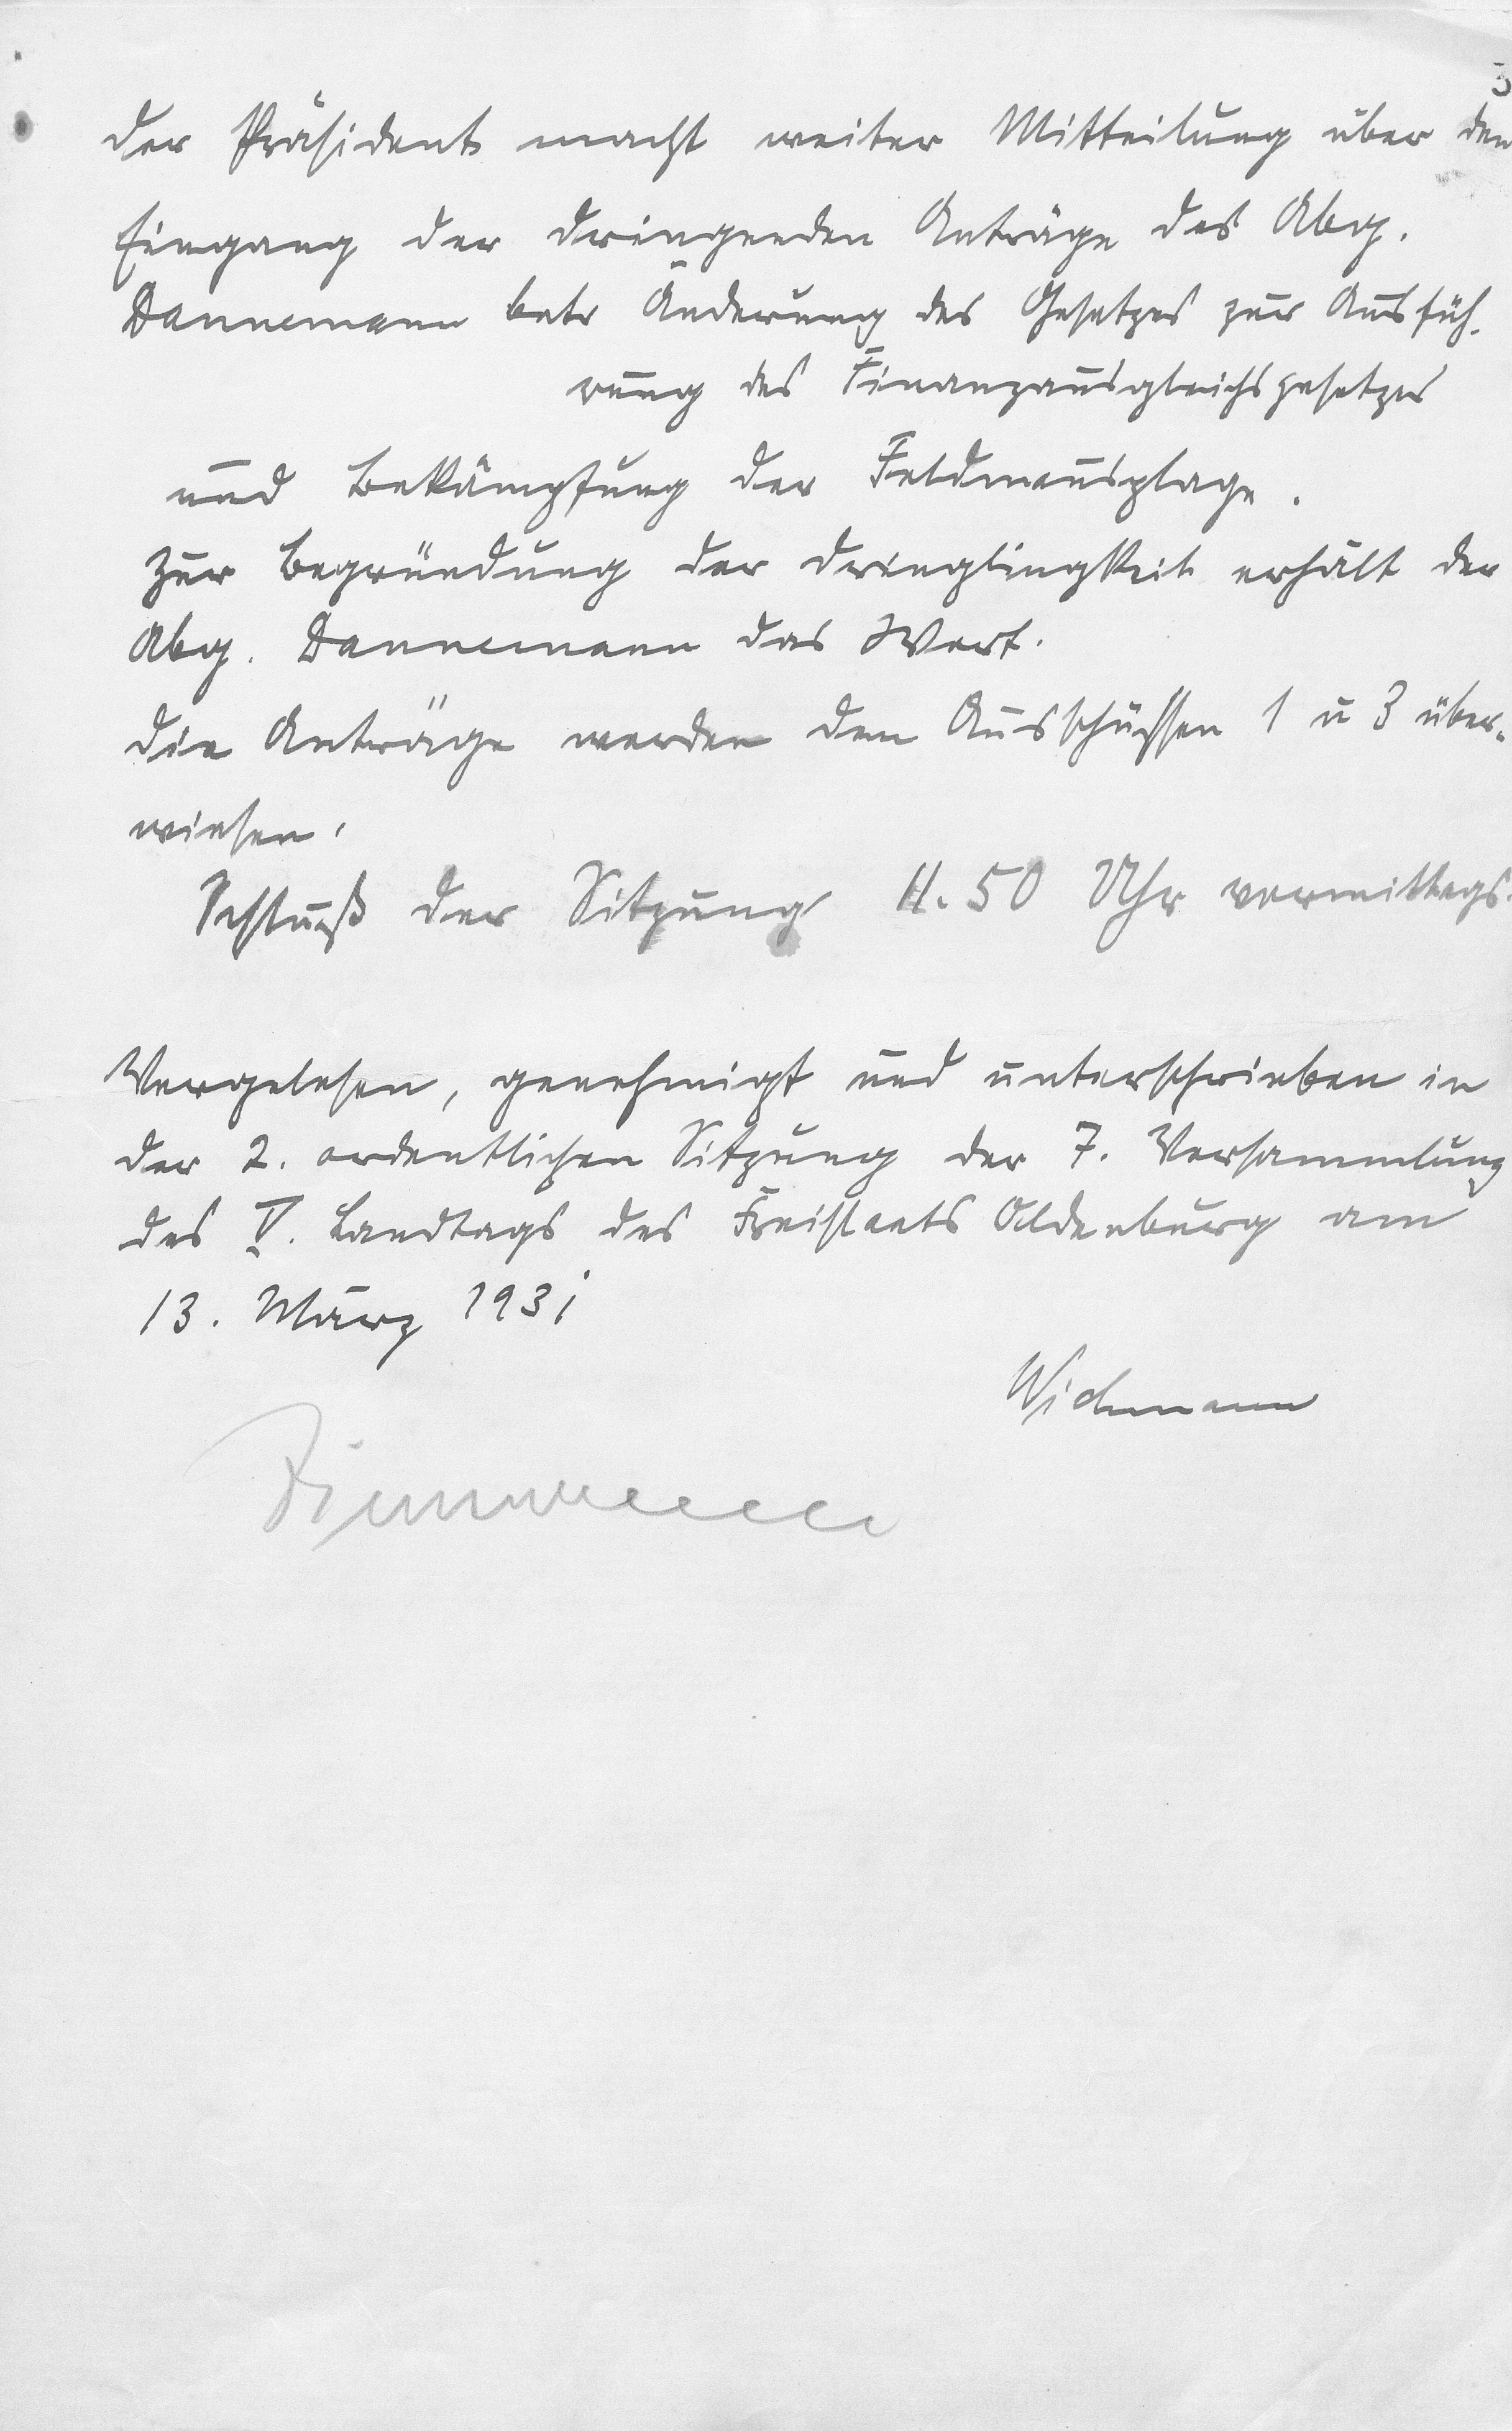 3
Der Präsident macht weiter Mitteilung über den
Eingang der dringenden Anträge des Abg.
Dannemann betr Änderung des Gesetzes zur Ausfüh-
rung des Finanzausgleichsgesetzes
und Bekämpfung der Feldmausplage.
Zur Begründung der Dringlingkeit erhält der
Abg. Dannemann das Wort.
Die Anträge werden den Ausschüssen 1 u 3 über-
wiesen.
Schluß der Sitzung 11.50 Uhr vormittags.
Vorgelesen, genehmigt und unterschrieben in
der 2. ordentlichen Sitzung der 7. Versammlung
des V. Landtags des Freistaats Oldenburg am
13. März 1931
Wichmann